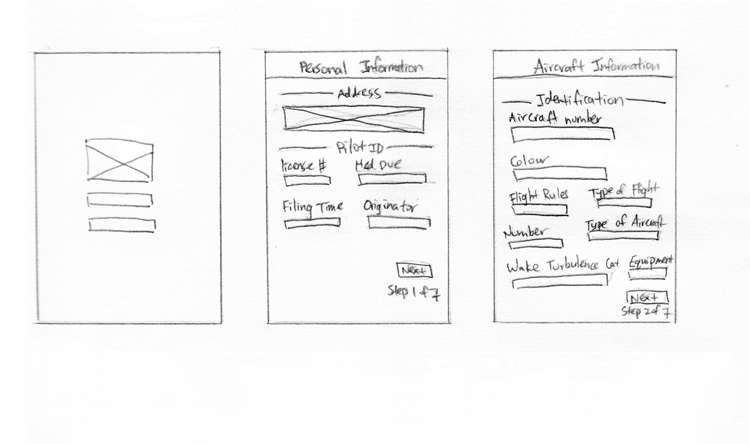 Personal Information
Address
Pilot ID
License # Med. Due
Filing Time Originator
Next
Step 1 of 7
Aircraft Information
Identification
Aircraft number
Colour
Flight Rules Type of Flight
Number Type of Aircraft
Wake Turbulence Cat Equipment
Next
Step 2 of 7